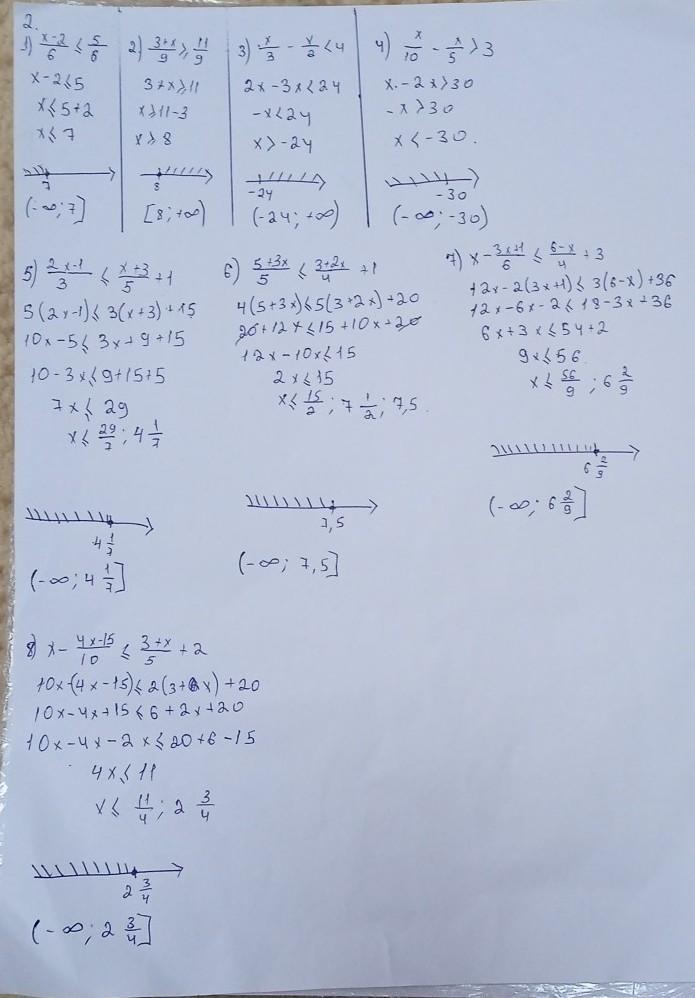 2.
1) x-2/6 ≤ 5/6
x-2≤5
x≤5+2
x≤7
7
(-∞; 7]
2) 3+x/9 ≥ 11/9
3+x≥11
x≥11-3
x≥8
8
[8; +∞)
3) x/3 - x/2 < 4
2x-3x<24
-x<24
x>-24
-24
(-24; +∞)
4) x/10 - x/5 > 3
x-2x>30
-x>30
x<-30.
-30
(-∞; -30)
5) 2x-1/3 ≤ x+3/5 +1
5(2x-1)≤3(x+3)+15
10x-5≤3x+9+15
10-3x≤9+15+5
7x≤29
x≤29/7; 4 1/7
4 1/7
(-∞; 4 1/7]
6) 5+3x/5 ≤ 3+2x/4 +1
4(5+3x)≤5(3+2x)+20
20+12x≤15+10x+20
12x-10x≤15
2x≤15
x≤15/2; 7 1/2; 7,5.
7,5
(-∞; 7,5]
7) x - 3x+1/6 ≤ 6-x/4 +3
12x-2(3x+1)≤3(6-x)+36
12x-6x-2≤18-3x+36
6x+3x≤54+2
9x≤56
x≤56/9; 6 2/9
6 2/9
(-∞; 6 2/9]
8) x - 4x-15/10 ≤ 3+x/5 +2
10x-(4x-15)≤2(3+x)+20
10x-4x+15≤6+2x+20
10x-4x-2x≤20+6-15
4x≤11
x≤11/4; 2 3/4
2 3/4
(-∞; 2 3/4]